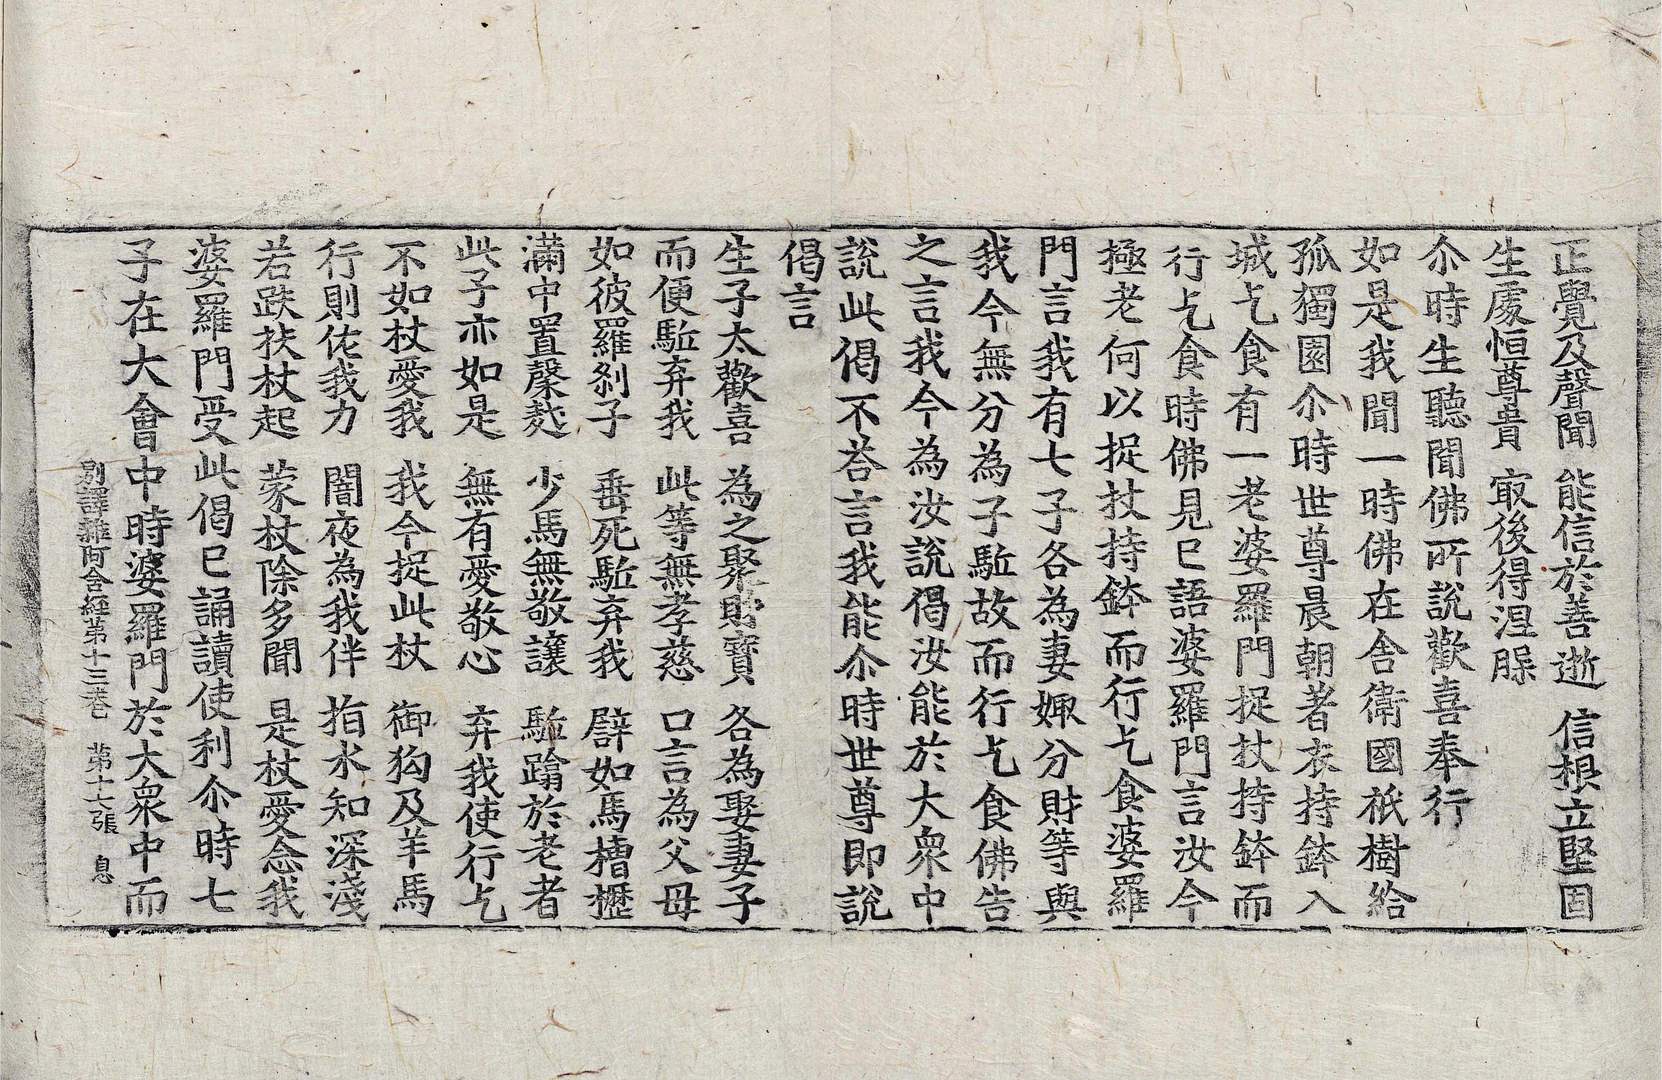 正覺及聲聞 能信於善逝 信根立堅固
生處恒尊貴 㝡後得涅槃
尒時生聽聞佛所說歡喜奉行
如是我聞一時佛在舍衛國祇樹給
孤獨園尒時世尊晨朝著衣持鉢入
城乞食有一老婆羅門捉杖持鉢而
行乞食時佛見已語婆羅門言汝今
極老何以捉杖持鉢而行乞食婆羅
門言我有七子各為妻娵分財等與
我今無分為子駈故而行乞食佛告
之言我今為汝說偈汝能於大衆中
說此偈不荅言我能尒時世尊即說
偈言
生子太歡喜 為之聚財寶 各為娶妻子
而便駈弃我 此等無孝慈 口言為父母
如彼羅剎子 垂死駈弃我 辟如馬槽櫪
滿中置 少馬無敬讓 駈蹹於老者
此子亦如是 無有愛敬心 弃我使行乞
不如杖愛我 我今捉此杖 御狗及羊馬
行則佐我力 闇夜為我伴 指水知深淺
若跌扶杖起 蒙杖除多聞 是杖愛念我
婆羅門受此偈已誦讀使利尒時七
子在大會中時婆羅門於大衆中而
別譯雜阿含經第十三卷 第十六張 息